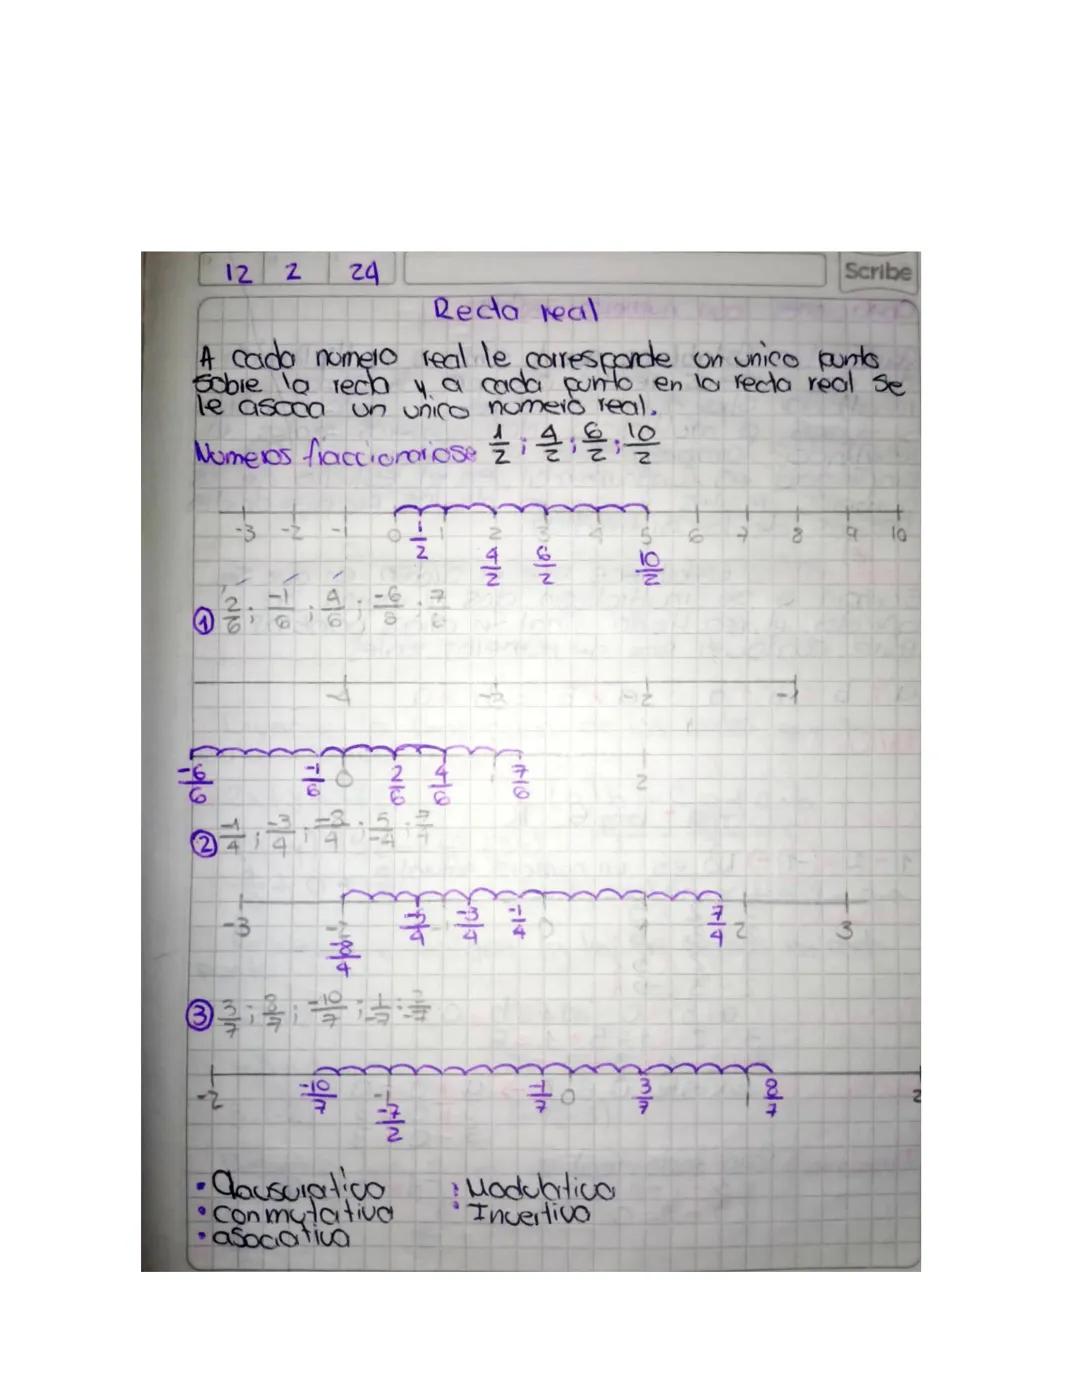 12 2 24 Scribe
Recta real
A cada numero real le corresponde un unico punto
sobre la recta y a cada punto en la recta real se
le asocia un unico numero real.
Numeros fraccionariose 1/2 ; 4/2 ; 6/2 ; 10/2
-3 -2 -1 0 1 2 3 4 5 6 7 8 9 10
1/2 4/2 6/2 10/2
① 2/6 ; -1/6 ; 4/6 ; -6/6 ; 7/6
-6/6 -1/6 0 2/6 4/6 1 7/6 2
② -1/4 ; -3/4 ; 5/-4 ; 7/4
-3 -2 -3/4 -1/4 0 1 7/4 2 3
-8/4
③ 3/7 ; 8/7 ; -10/7 ; 1/-7
-2 -10/7 -1 -1/7 0 3/7 1 8/7 2
-7/2
• Clausurativa : Modulativa
• conmutativa • Invertiva
• asociativa